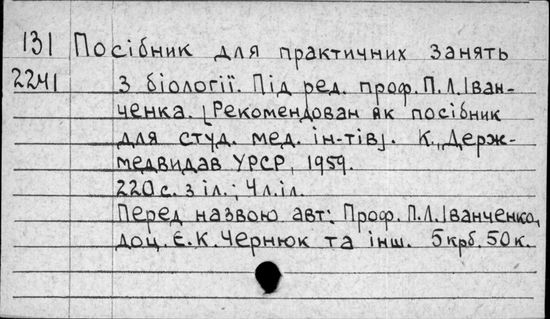 131 Посібник для практичних занять
2241 з біології. Під ред. проф. П.Л.Іван-
ченка. [Рекомендован як посібник
для студ. мед. ін-тів]. К., Держ-
медвидав УРСР, 1959.
220с. з іл.; 4л.іл.
Перед назвою авт: Проф. П.Л.Іванченко,
доц. Є.К.Чернюк та інш. 5крб.50к.